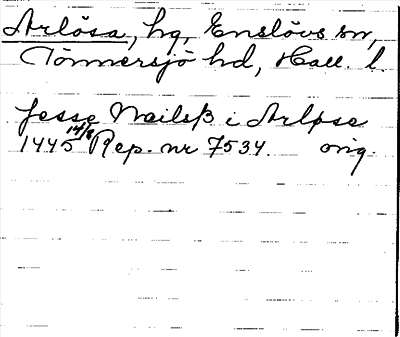 Arlösa, hg, Enslövs sn,
Tönnersjö hd, Hall. l.
Jesse Nailsß i Arløse
1445 14/8 Rep. nr 7534. orig.